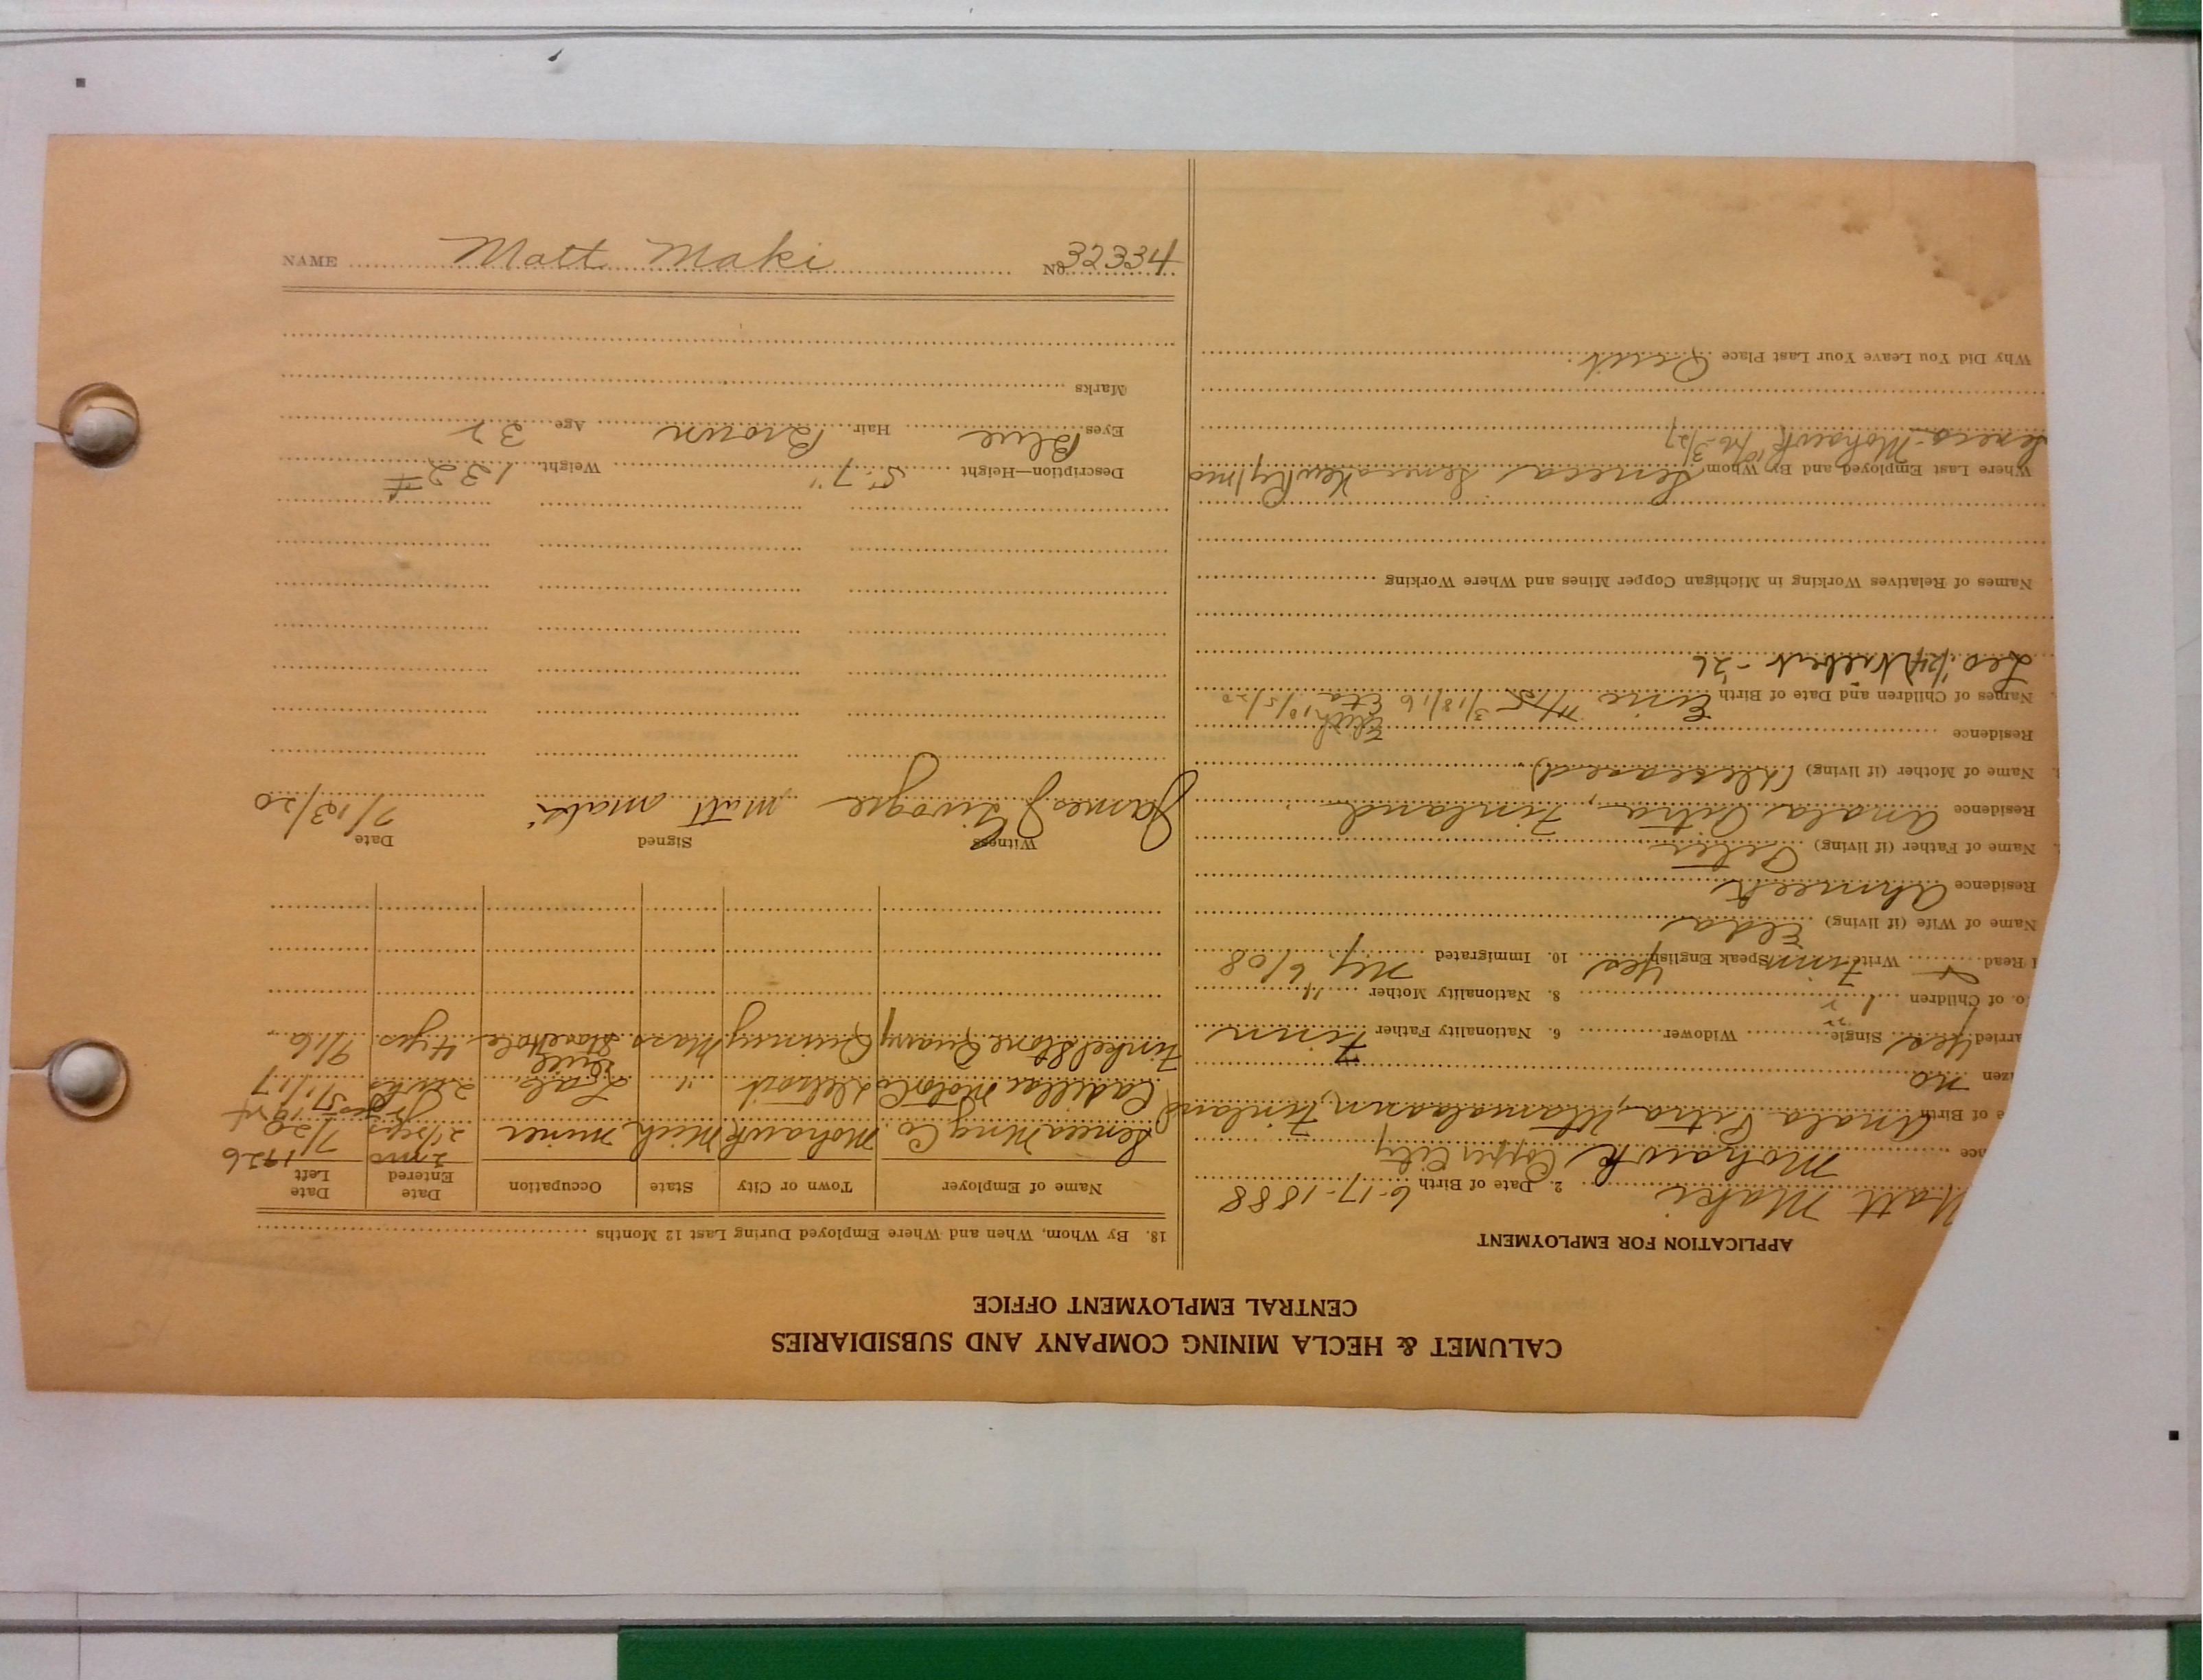 CALUMET & HECLA MINING COMPANY AND SUBSIDIARIES
CENTRAL EMPLOYMENT OFFICE
APPLICATION FOR EMPLOYMENT
Matt Maki 2. Date of Birth 6-17-1888
nce Mohawk Copper City
e of Birth Anala Pitra, Finland
zen no
arried Yes Single Widower 6. Nationality Father Finn
o. of Children 8. Nationality Mother "
I Read Write Finn Speak English Yes 10. Immigrated Ny 6/08
Name of Wife (if living) Elda
Residence Ahmeek
Name of Father (if living) Peter
Residence Anala Pitra, Finland
Name of Mother (if living) (deceased)
Residence
Names of Children and Date of Birth 3/18/16 10/5/20
Leo -26
Names of Relatives Working in Michigan Copper Mines and Where Working
Where Last Employed and By Whom Seneca Seneca
Seneca-Mohawk
Why Did You Leave Your Last Place Quit
18. By Whom, When and Where Employed During Last 12 Months
Name of Employer Town or City State Occupation Date Entered Date Left
2 mo 1926
Seneca Mng Co. Mohawk Mich miner 2½ yrs 7/20
Cadillac Motor Co Detroit " Lab. 2 wks 1/17
Finkel Stone Quarry Quinncy Mass Drill 4 yrs. 9/16
Witness Signed Date
James J Matt Maki 7/13/20
Description—Height 5'-7" Weight 132#
Eyes Blue Hair Brown Age 32
Marks
NAME Matt Maki No. 32334